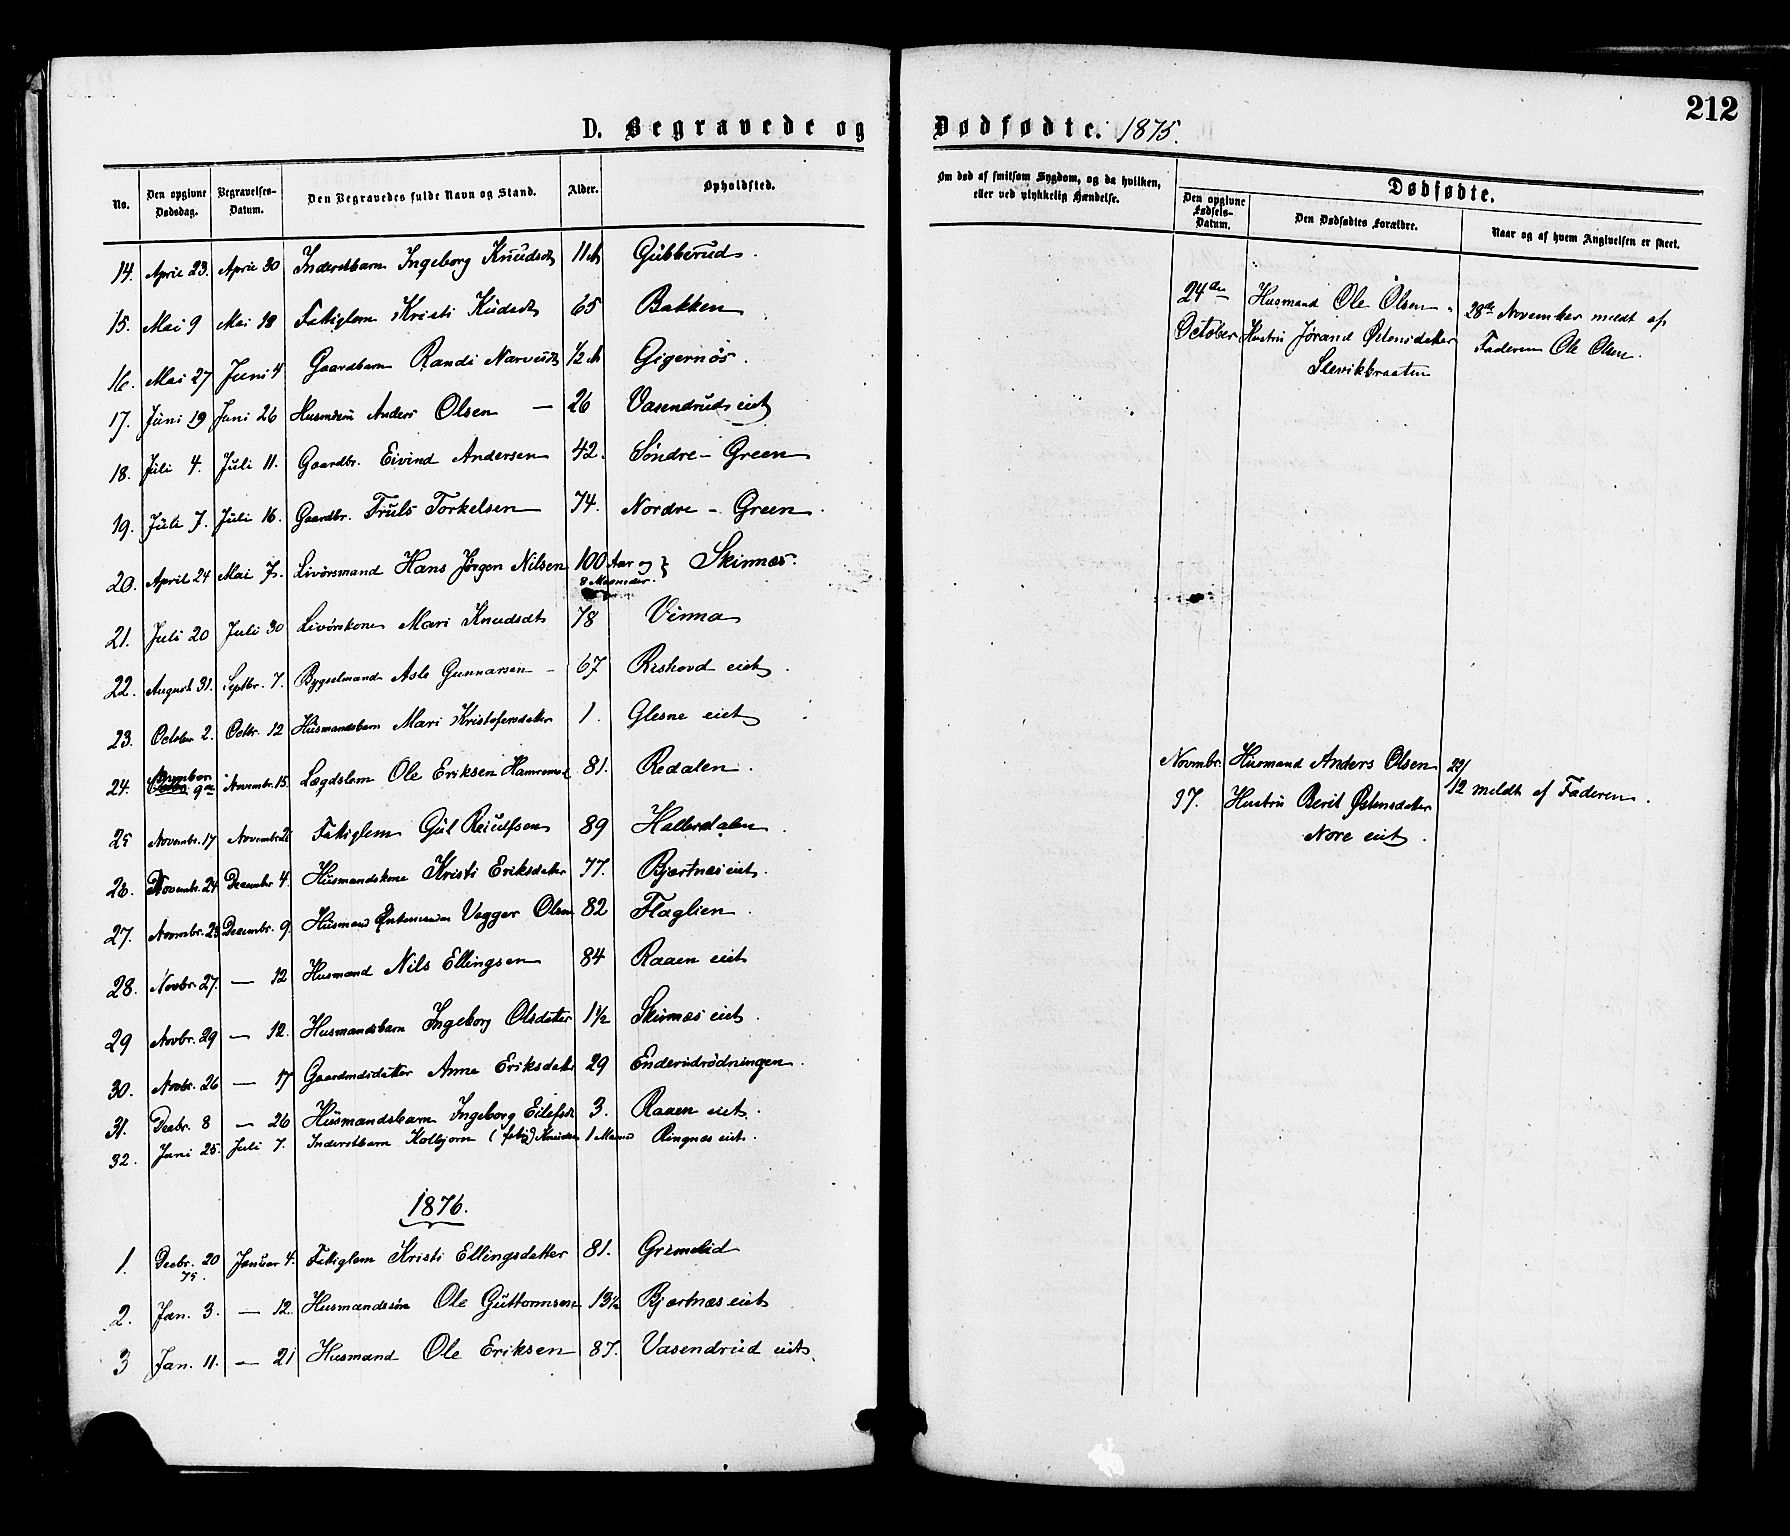 212
D. Begravede og Dødfødte. 1875.
No. Den opgivne Dødsdag. Begravelses-Datum. Den Begravedes fulde Navn og Stand. Alder. Opholdssted.
14. April 23. April 30 Inderstbarn Ingeborg Knudsdt 11 M Gubberud.
15. Mai 9 Mai 18 Fattiglem Kristi Kudsdt 65 Bakken
16. Mai 27 Juni 4 Gaardbarn Randi Narvesdt 1/2 M Gigernös.
17. Juni 19 Juni 26 Anders Olsen — 26 Vasendruds eiet
18. Juli 4. Juli 11. Gaardbr. Eivind Andersen 42. Søndre - Green
19. Juli 7. Juli 16. Gaardbr. Truls Torkelsen 74. Nordre - Green.
20. April 24 Mai 7. Livörsmand Hans Jørgen Nilsen 100 Aar og } Skinnes.
8 Maaneder.
21. Juli 20 Juli 30 Livörskone Mari Knudsdt 78 Virma
22. August 31. Septbr. 7. Bygselmand Asle Gunnarsen - 67 Rishovd eiet.
23. October 2. Octbr. 12 Husmandsbarn Mari Kristofersdatter 1. Glesne eiet
24. 9de Novembr. 15. Lægdslem Ole Eriksen 81. Redalen.
25 Novembr. 17 Fattiglem Gul 89 Hallerdalen
26. Novembr. 24 December 4. Husmandskone Kristi Eriksdatter 77. Bjertnæs eiet.
27. Novmbr. 23 Decembr. 9. Husmand Vegger Olsen 82 Flaglien.
28. Novbr. 27. — 12 Husmand Nils Ellingsen 84 Raaen eiet
29 Novbr. 29 — 12. Husmandsbarn Ingeborg Olsdatter 1½ Skinnes eiet.
30. Novbr. 26 — 17 Gaardmdsdatter Anne Eriksdatt 29 Enderudrødningen.
31. Decbr. 8 — 26 Husmandsbarn Ingeborg Eilefsdt 3. Raaen eiet.
32. Juni 25. Juli 7. Inderstbarn Kolbjørn Knudsen 1 Maaned Ringnæs eiet.
1876.
1. Decbr. 20 Januar 4. Fattiglem Kristi Ellingsdatter 81. Grimelid
75.
2. Jan. 3. — 12. Husmandssön Ole Guttormsen 13½ Bjertnæs eiet
3 Jan. 11. — 21 Husmand Ole Eriksen 87. Vasendrud eiet.
Om død af smitsom Sygdom, og da hvilken, eller ved ulykkelig Hændelse.
Dødfødte.
Den opgivne Fødsels-Datum. Den Dødfødtes Forældre. Naar og af hvem Angivelsen er skeet.
24de Husmand Ole Olsen 28de November meldt af
October Hustru Jørand Østensdatter Faderen Ole Olsen.
Slevikbraaten
Novmbr. Husmand Anders Olsen 22/12 meldt af Faderen.
Hustru Berit Østensdatter
Nore eiet.